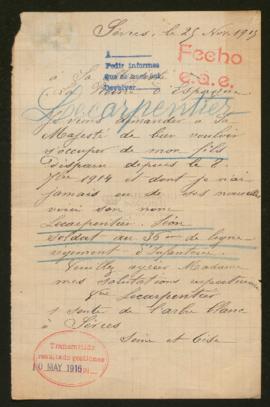 Sèvres, le 25 Nov. 1915
A
Pedir informes
Que se anote
Devolver
Fecho
c.a.e.
à Sa
la Reine d'Espagne
Lecarpentier
Je viens demander à Sa
Majesté de bien vouloir
s'occuper de mon fils
Disparu depuis le 8
7bre 1914 et dont je n'ai
jamais eu de ses nouvelles
voici son nom
Lecarpentier Léon
soldat au 36me de ligne
régiment d'Infanterie.
Veuillez agréer Madame
mes salutations respectueuses
Lecarpentier
1 sente de l'arbre blanc
à Sèvres
Seine et Oise
Transmitido
resultado gestiones
10 MAY 1916